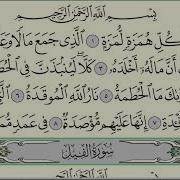 بِسْمِ اللَّهِ الرَّحْمَٰنِ الرَّحِيمِ
كُلِّ هُمَزَةٍ لُّمَزَةٍ ١ الَّذِي جَمَعَ مَالًا
أَنَّ مَالَهُ أَخْلَدَهُ ٣ كَلَّا لَيُنبَذَنَّ فِي
مَا الْحُطَمَةُ ٥ نَارُ اللَّهِ الْمُوقَدَةُ ٦
٧ إِنَّهَا عَلَيْهِم مُّؤْصَدَةٌ ٨ فِي عَمَدٍ
سُورَةُ الْفِيلِ